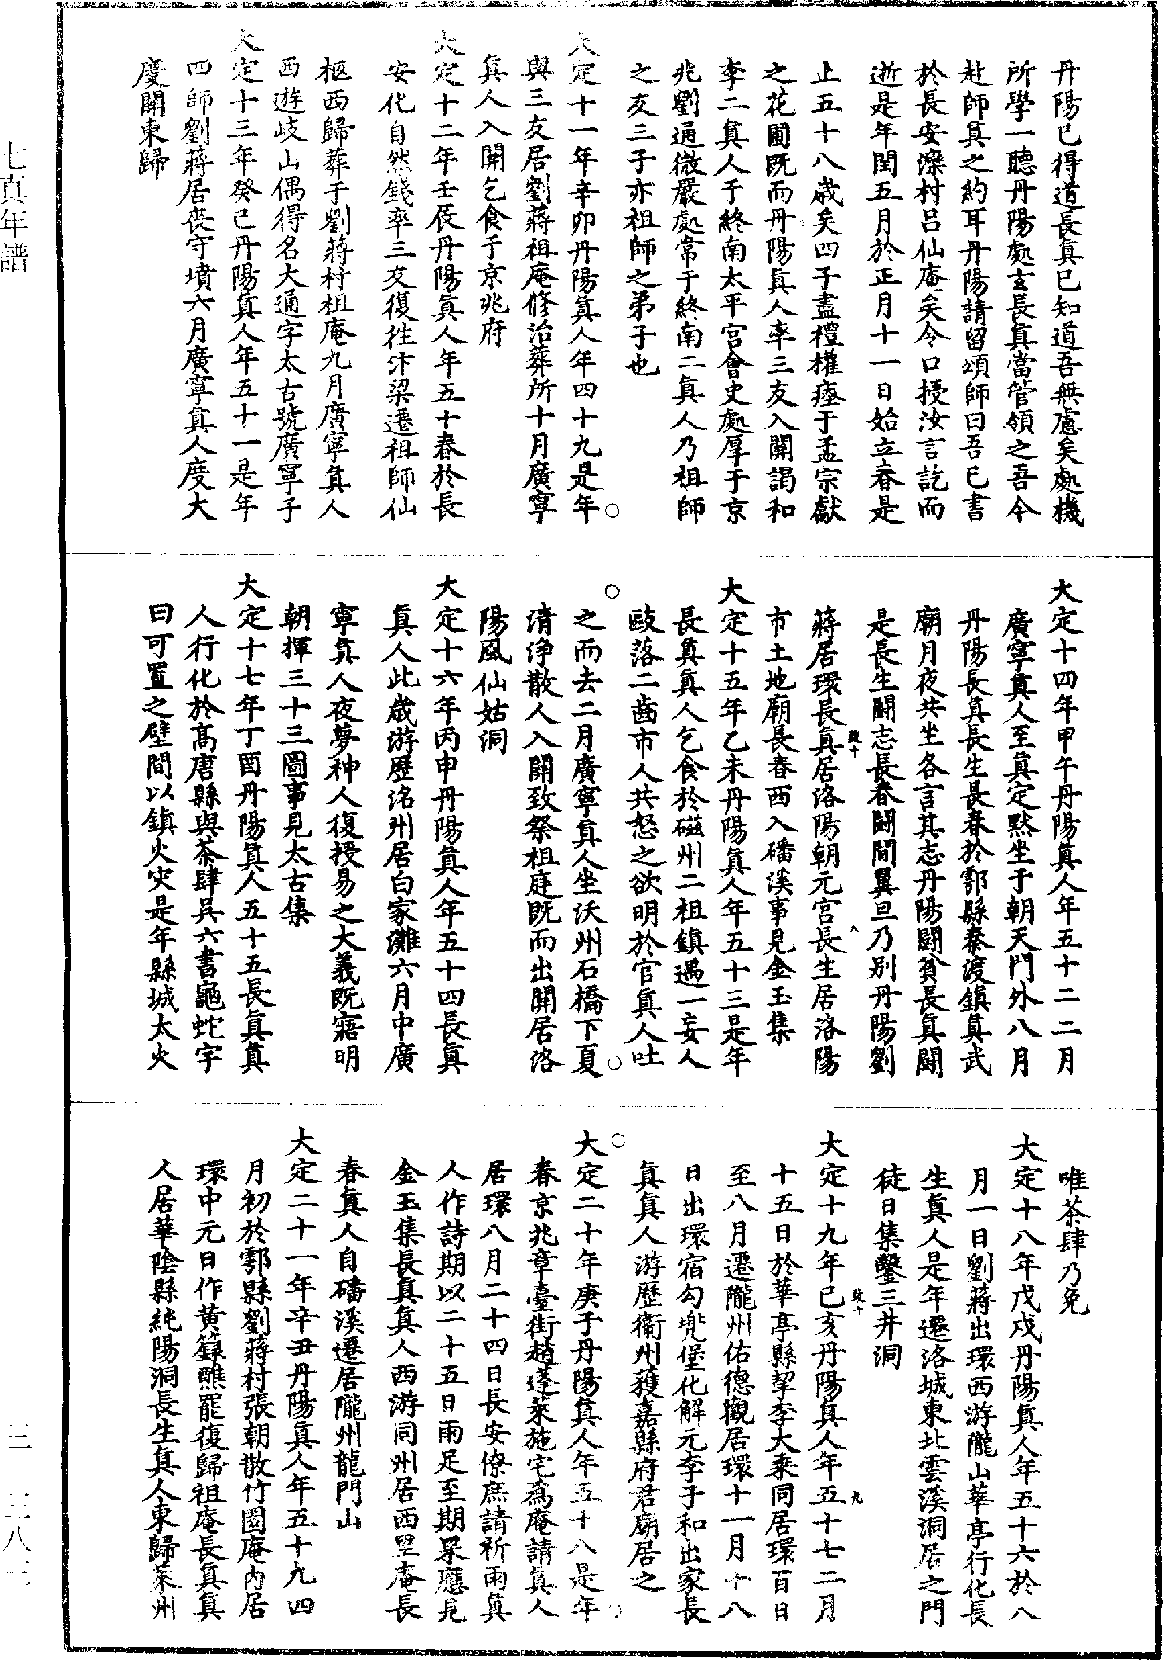 丹陽已得道長真已知道吾無慮矣處機
所學一聽丹陽處玄長真當管領之吾今
赴師真之約耳丹陽請留頌師曰吾已書
於長安灤村呂仙庵矣今口授汝言訖而
逝是年閏五月於正月十一日始立春是
止五十八歲矣四子盡禮權瘞于孟宗獻
之花圃既而丹陽真人率三友入關謁和
李二真人于終南太平宮會史處厚于京
兆劉通微嚴處常于終南二真人乃祖師
之友三子亦祖師之弟子也
大定十一年辛卯丹陽真人年四十九是年
與三友居劉蔣祖庵修治葬所十月廣寧
真人入關乞食于京兆府
大定十二年壬辰丹陽真人年五十春於長
安化自然錢率三友復往汴梁遷祖師仙
柩西歸葬于劉蔣村祖庵九月廣寧真人
西遊岐山偶得名大通字太古號廣寧子
大定十三年癸巳丹陽真人年五十一是年
四師劉蔣居喪守墳六月廣寧真人度大
慶關東歸
大定十四年甲午丹陽真人年五十二二月
廣寧真人至真定默坐于朝天門外八月
丹陽長真長生長春於鄠縣秦渡鎮真武
廟月夜共坐各言其志丹陽鬪貧長真鬪
是長生鬪志長春鬪閒翼旦乃別丹陽劉
蔣居環長真居洛陽朝元宮長生居洛陽
市土地廟長春西入磻溪事見金玉集
大定十五年乙未丹陽真人年五十三是年
長真真人乞食於磁州二祖鎮遇一妄人
毆落二齒市人共怒之欲明於官真人吐
之而去二月廣寧真人坐沃州石橋下夏
清淨散人入關致祭祖庭既而出關居洛
陽風仙姑洞
大定十六年丙申丹陽真人年五十四長真
真人此歲游歷洺州居白家灘六月中廣
寧真人夜夢神人復授易之大義既寤明
朝揮三十三圖事見太古集
大定十七年丁酉丹陽真人五十五長真真
人行化於高唐縣與茶肆吳六書龜蛇字
曰可置之壁間以鎮火災是年縣城大火
唯茶肆乃免
大定十八年戊戌丹陽真人年五十六於八
月一日劉蔣出環西游隴山華亭行化長
生真人是年遷洛城東北雲溪洞居之門
徒日集鑿三井洞
大定十九年己亥丹陽真人年五十七二月
十五日於華亭縣挈李大乘同居環百日
至八月遷隴州佑德觀居環十一月十八
日出環宿勾兠堡化解元李子和出家長
真真人游歷衛州獲嘉縣府君廟居之
大定二十年庚子丹陽真人年五十八是年
春京兆章臺街趙蓬萊施宅為庵請真人
居環八月二十四日長安僚庶請祈雨真
人作詩期以二十五日雨足至期果應見
金玉集長真真人西游同州居西里庵長
春真人自磻溪遷居隴州龍門山
大定二十一年辛丑丹陽真人年五十九四
月初於鄠縣劉蔣村張朝散竹園庵內居
環中元日作黃籙醮罷復歸祖庵長真真
人居華陰縣純陽洞長生真人東歸萊州
七真年譜